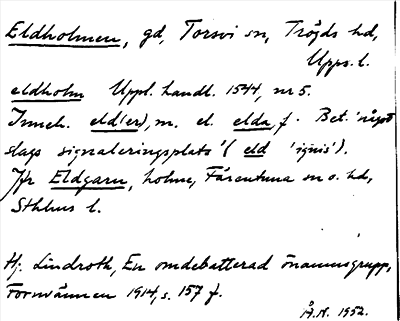 Eldholmen, gd, Torsvi sn, Trögds hd,
Upps. l.
eldholm Uppl. handl. 1544, nr 5.
Inneh. eld(er), m. el. elda, f. Bet. 'något
slags signaleringsplats' (eld 'ignis').
Jfr Eldgarn, holme, Färentuna sn o. hd,
Sthlms l.
Hj. Lindroth, En omdebatterad önamnsgrupp,
Fornvännen 1914, s. 157 f.
Å.K. 1952.